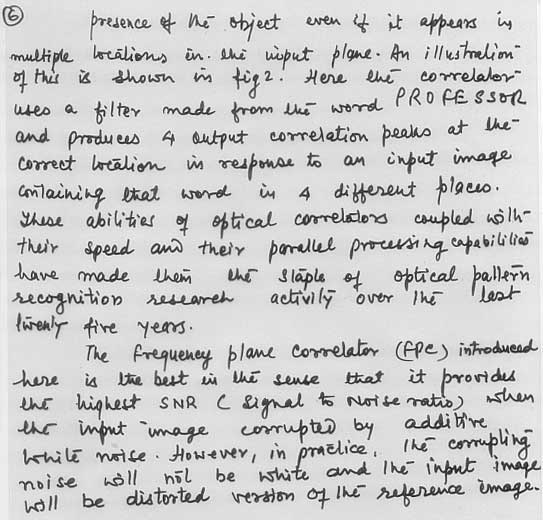 6 presence of the object even if it appears in
multiple locations in the input plane. An illustration
of this is shown in fig 2. Here the correlator
uses a filter made from the word PROFESSOR
and produces 4 output correlation peaks at the
correct location in response to an input image
containing that word in 4 different places.
These abilities of optical correlators coupled with
their speed and their parallel processing capabilities
have made them the staple of optical pattern
recognition research activity over the last
twenty five years.
The frequency plane correlator (FPC) introduced
here is the best in the sense that it provides
the highest SNR (Signal to Noise ratio) when
the input image corrupted by additive
white noise. However, in practice, the corrupting
noise will not be white and the input image
will be distorted version of the reference image.